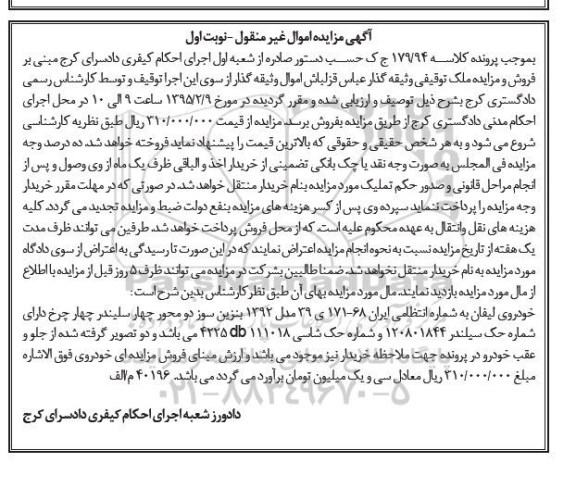 آگهی مزایده اموال غیر منقول -نوبت اول
بموجب پرونده کلاســه ۱۷۹/۹۴ ج ک حســب دستور صادره از شعبه اول اجرای احکام کیفری دادسرای کرج مبنی بر
فروش و مزایده ملک توقیفی وثیقه گذار عباس قزلباش اموال وثیقه گذار از سوی این اجرا توقیف و توسط کارشناس رسمی
دادگستری کرج بشرح ذیل توصیف و ارزیابی شده و مقرر گردیده در مورخ ۱۳۹۵/۲/۹ ساعت ۹ الی ۱۰ در محل اجرای
احکام مدنی دادگستری کرج از طریق مزایده بفروش برسد. مزایده از قیمت ۳۱۰/۰۰۰/۰۰۰ ریال طبق نظریه کارشناسی
شروع می شود و به هر شخص حقیقی و حقوقی که بالاترین قیمت را پیشنهاد نماید فروخته خواهد شد. ده درصد وجه
مزایده فی المجلس به صورت وجه نقد یا چک بانکی تضمینی از خریدار اخذ و الباقی ظرف یک ماه از وی وصول و پس از
انجام مراحل قانونی و صدور حکم تملیک مورد مزایده بنام خریدار منتقل خواهد شد. در صورتی که در مهلت مقرر خریدار
وجه مزایده را پرداخت ننماید سپرده وی پس از کسر هزینه های مزایده بنفع دولت ضبط و مزایده تجدید می گردد. کلیه
هزینه های نقل وانتقال به عهده محکوم علیه است. که از محل فروش پرداخت خواهد شد. طرفین می توانند ظرف مدت
یک هفته از تاریخ مزایده نسبت به نحوه انجام مزایده اعتراض نمایند که در این صورت تا رسیدگی به اعتراض از سوی دادگاه
مورد مزایده به نام خریدار منتقل نخواهد شد. ضمنا طالبین بشرکت در مزایده می توانند ظرف ۵ روز قبل از مزایده با اطلاع
از مال مورد مزایده بازدید نمایند. مال مورد مزایده بهای آن طبق نظر کارشناس بدین شرح است:
خودروی لیفان به شماره انتظامی ایران ۶۸-۱۷۱ ی ۲۹ مدل ۱۳۹۲ بنزین سوز دو محور چهار سلیندر چهار چرخ دارای
شماره حک سیلندر ۱۲۰۸۰۱۸۴۴ و شماره حک شاسی ۱۱۱۰۱۸ db ۴۲۲۵ می باشد و دو تصویر گرفته شده از جلو و
عقب خودرو در پرونده جهت ملاحظه خریدار نیز موجود می باشد و ارزش مبنای فروش مزایده ای خودروی فوق الاشاره
مبلغ ۳۱۰/۰۰۰/۰۰۰ ریال معادل سی و یک میلیون تومان برآورد می گردد می باشد. ۴۰۱۹۶ م/الف
دادورز شعبه اجرای احکام کیفری دادسرای کرج
۰۲۱-۸۸۳۴۹۶۷۰-۵